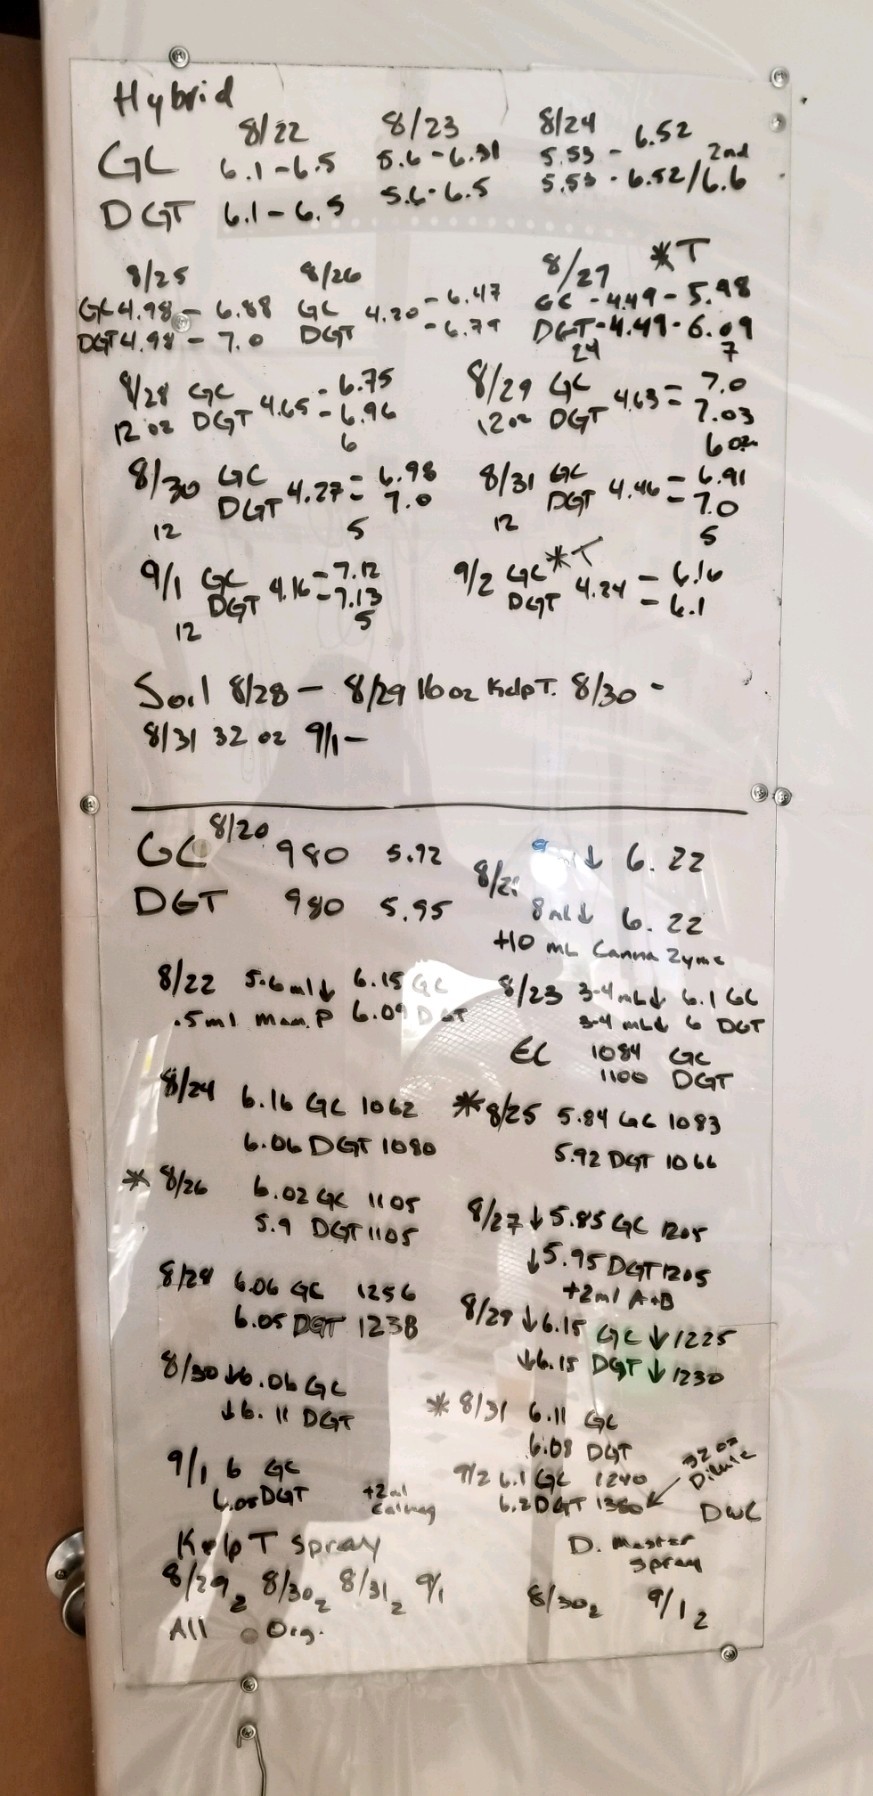 Hybrid
8/22 8/23 8/24
GC 6.1-6.5 5.6-6.31 5.53 - 6.52
DGT 6.1-6.5 5.6-6.5 5.53 - 6.52/6.6 2nd
8/25 8/26 8/27 *T
GC 4.98 - 6.88 GC 4.20 - 6.47 GC - 4.49 - 5.98
DGT 4.98 - 7.0 DGT - 6.79 DGT - 4.49 - 6.09
24 7
8/28 GC 4.65 - 6.75 8/29 GC 4.63 - 7.0
12 oz DGT - 6.96 12 oz DGT - 7.03
6 6 oz
8/30 GC 4.27 - 6.98 8/31 GC 4.46 - 6.91
DGT - 7.0 DGT - 7.0
12 5 12 5
9/1 GC 4.16 - 7.12 9/2 GC *T 4.24 - 6.16
DGT - 7.13 DGT - 6.1
12 5
Soil 8/28 - 8/29 16 oz Kelp T. 8/30 -
8/31 32 oz 9/1 -
GC 8/20 980 5.92 ↓ 6.22
DGT 980 5.95 8ml↓ 6.22
+10 mL Canna Zyme
8/22 5.6ml↓ 6.15 GC 8/23 3-4 mL↓ 6.1 GC
.5ml Mam. P 6.09 DGT 3-4 mL↓ 6 DGT
EC 1084 GC
1100 DGT
8/24 6.16 GC 1062 *8/25 5.84 GC 1083
6.06 DGT 1080 5.92 DGT 1066
* 8/26 6.02 GC 1105 8/27 ↓5.85 GC 1205
5.9 DGT 1105 ↓5.95 DGT 1205
+2ml A+B
8/28 6.06 GC 1256 8/29 ↓6.15 GC ↓1225
6.05 DGT 1238 ↓6.15 DGT ↓1230
8/30 ↓6.06 GC * 8/31 6.11 GC
↓6.11 DGT 6.08 DGT
9/1 6 GC 9/2 6.1 GC 1240 32 oz Dilute
6.05 DGT +2ml Calmag 6.2 DGT 1350 DWC
Kelp T Spray D. Master Spray
8/29 2 8/30 2 8/31 2 9/1 8/30 2 9/1 2
All Org.